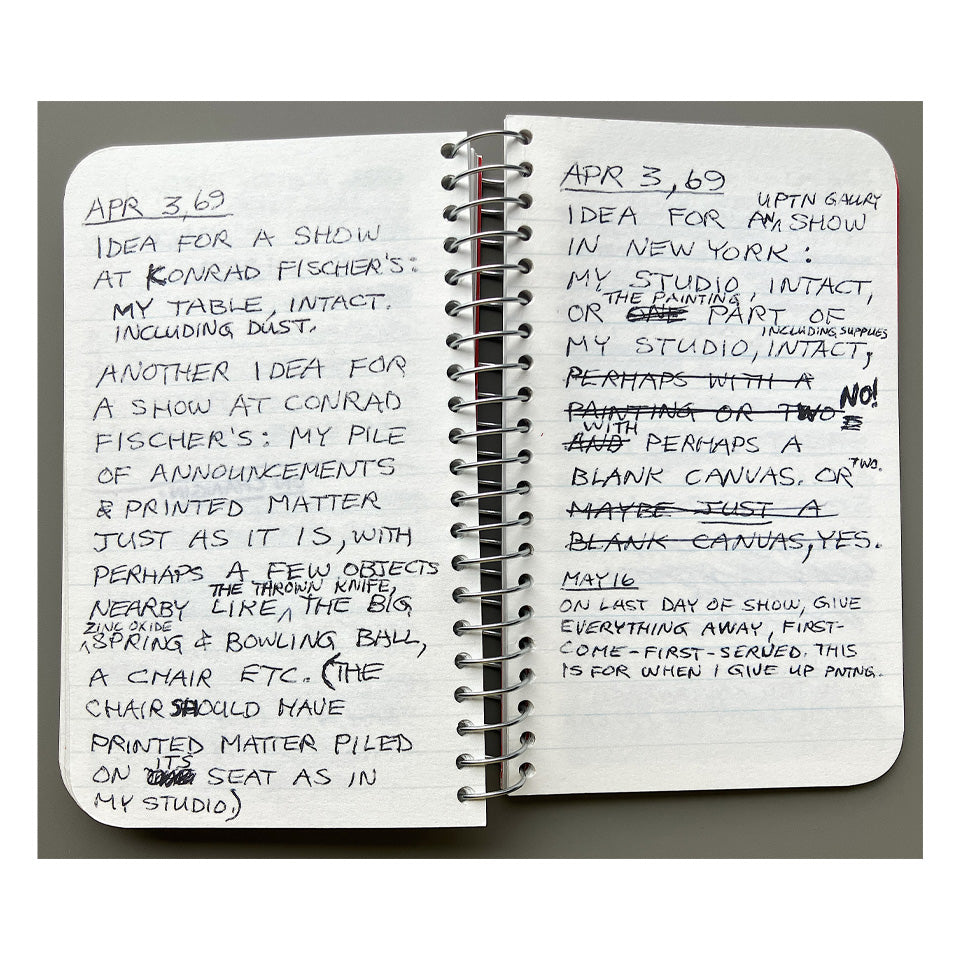 APR 3, 69
IDEA FOR A SHOW
AT KONRAD FISCHER'S:
MY TABLE, INTACT.
INCLUDING DUST.
ANOTHER IDEA FOR
A SHOW AT CONRAD
FISCHER'S: MY PILE
OF ANNOUNCEMENTS
& PRINTED MATTER
JUST AS IT IS, WITH
PERHAPS A FEW OBJECTS
THE THROWN KNIFE,
NEARBY LIKE, THE BIG
ZINC OXIDE
SPRING & BOWLING BALL,
A CHAIR ETC. (THE
CHAIR SHOULD HAVE
PRINTED MATTER PILED
ITS
ON SEAT AS IN
MY STUDIO.)
APR 3, 69
UPTN GALLRY
IDEA FOR AN SHOW
IN NEW YORK:
MY STUDIO, INTACT,
THE PAINTING,
OR ONE PART OF
INCLUDING SUPPLIES
MY STUDIO, INTACT,
PERHAPS WITH A
NO!
PAINTING OR TWO
WITH
AND PERHAPS A
TWO.
BLANK CANVAS. OR
MAYBE JUST A
BLANK CANVAS, YES.
MAY 16
ON LAST DAY OF SHOW, GIVE
EVERYTHING AWAY, FIRST-
COME-FIRST-SERVED. THIS
IS FOR WHEN I GIVE UP PNTNG.